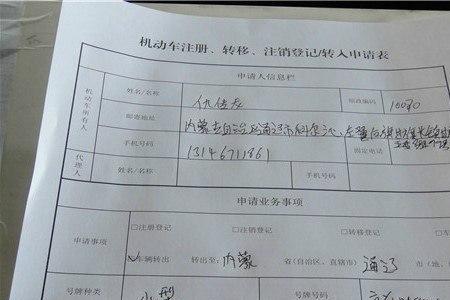 机动车注册、转移、注销登记/转入申请表
申请人信息栏
机动车所有人
姓名/名称 仇 邮政编码
邮寄地址 内蒙古自治区通辽市科尔沁左翼后旗
手机号码 13146711861 固定电话
代理人
姓名/名称
手机号码
申请业务事项
申请事项
□注册登记 □注销登记 □转移登记
车辆转出 转出至: 内蒙 省(自治区、直辖市) 通辽 市(地、
号牌种类 小型 号牌号码